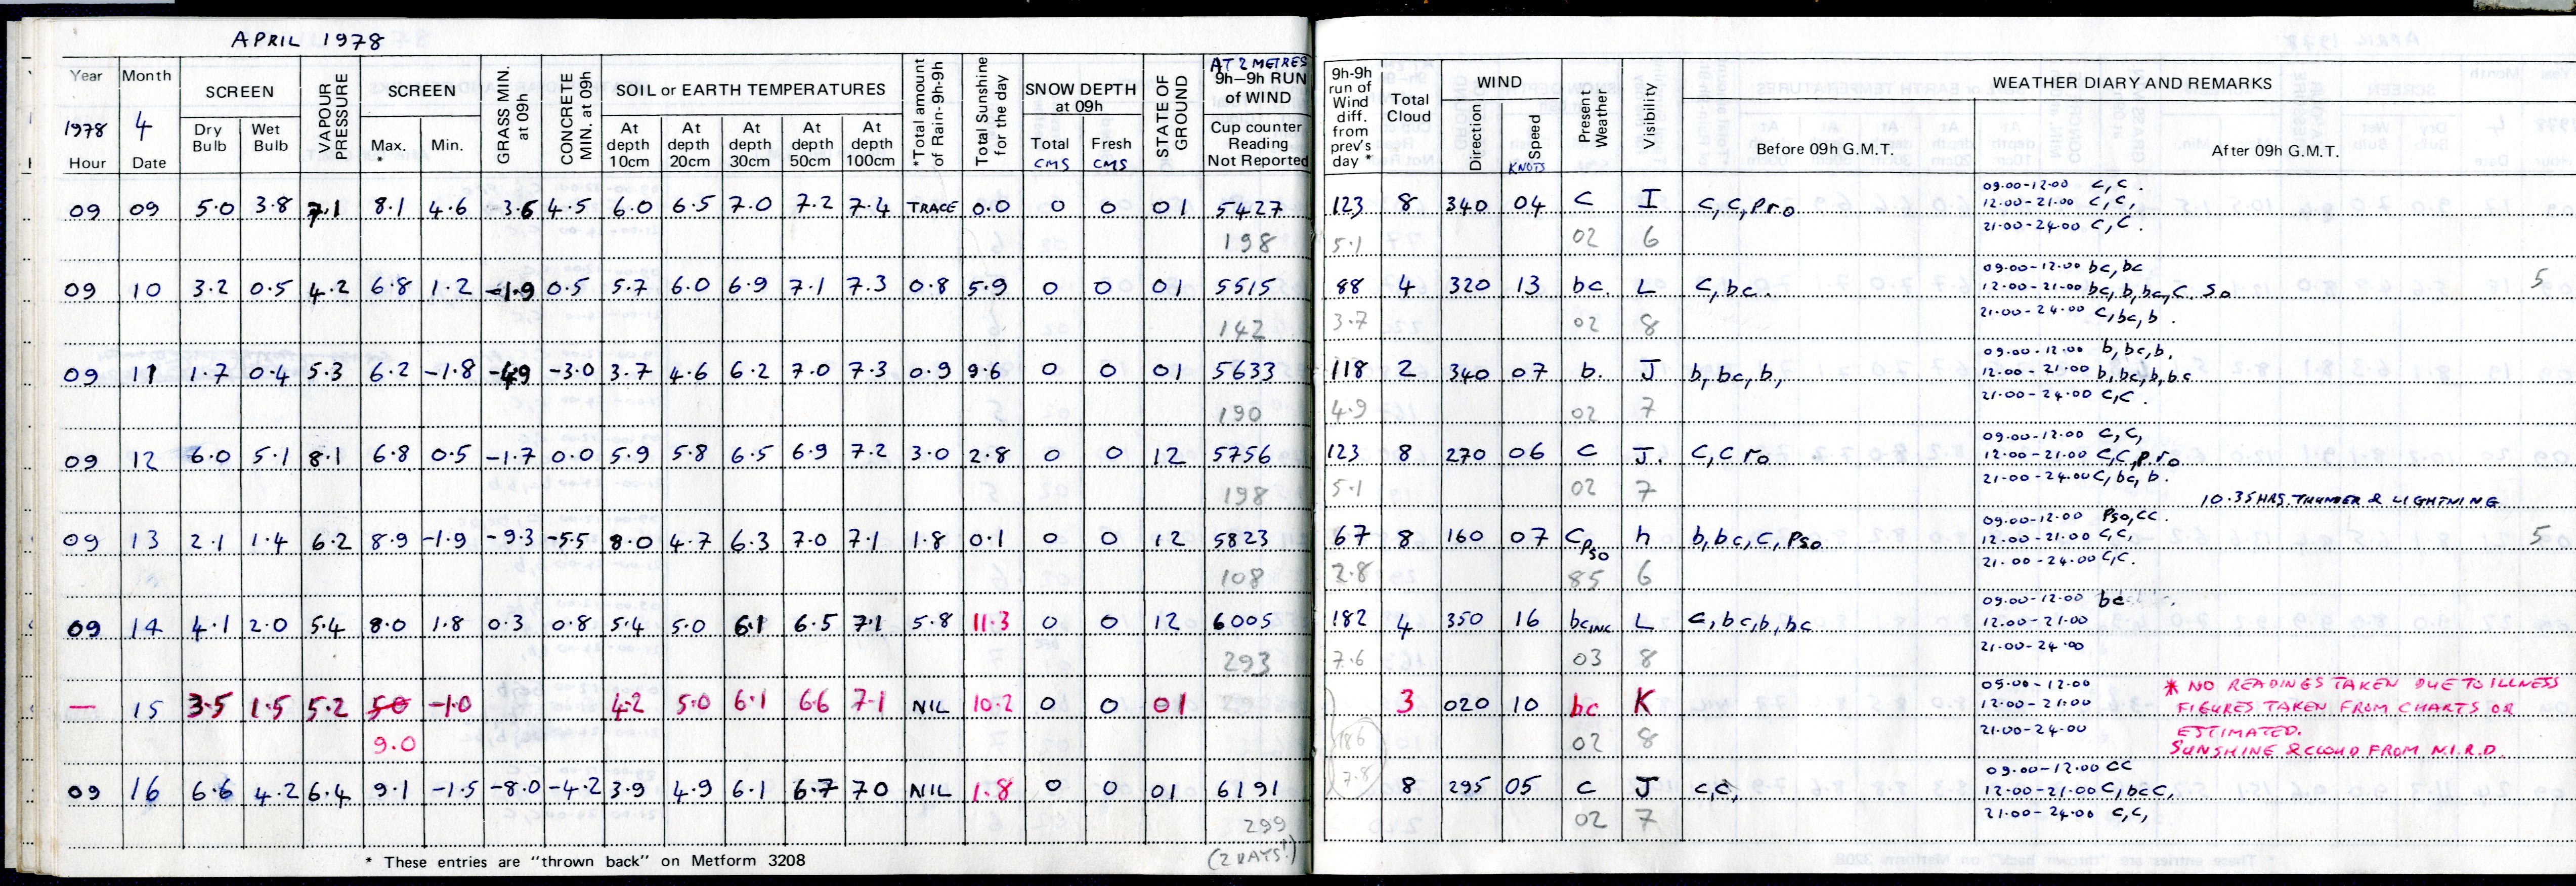 APRIL 1978
Year Month SCREEN VAPOUR PRESSURE SCREEN GRASS MIN. at 09h CONCRETE MIN. at 09h SOIL or EARTH TEMPERATURES *Total amount of Rain-9h-9h Total Sunshine for the day SNOW DEPTH at 09h STATE OF GROUND AT 2 METRES 9h–9h RUN of WIND 9h-9h run of Wind diff. from prev's day * Total Cloud WIND Present Weather Visibility WEATHER DIARY AND REMARKS
1978 4 Dry Bulb Wet Bulb Max. * Min. At depth 10cm At depth 20cm At depth 30cm At depth 50cm At depth 100cm Total CMS Fresh CMS Cup counter Reading Not Reported Direction Speed KNOTS Before 09h G.M.T. After 09h G.M.T.
Hour Date
09.00-12.00 C, C.
09 09 5.0 3.8 7.1 8.1 4.6 -3.6 4.5 6.0 6.5 7.0 7.2 7.4 TRACE 0.0 0 0 01 5427 123 8 340 04 C I C, C, pro 12.00-21.00 C, C,
198 5.1 02 6 21.00-24.00 C, C.
09.00-12.00 bc, bc
09 10 3.2 0.5 4.2 6.8 1.2 -1.9 0.5 5.7 6.0 6.9 7.1 7.3 0.8 5.9 0 0 01 5515 88 4 320 13 bc. L C, bc. 12.00-21.00 bc, b, bc, C. So 5
142 3.7 02 8 21.00-24.00 C, bc, b.
09.00-12.00 b, bc, b.
09 11 1.7 0.4 5.3 6.2 -1.8 -4.9 -3.0 3.7 4.6 6.2 7.0 7.3 0.9 9.6 0 0 01 5633 118 2 340 07 b. J b, bc, b, 12.00-21.00 b, bc, b, bc
190 4.9 02 7 21.00-24.00 C, C.
09.00-12.00 C, C,
09 12 6.0 5.1 8.1 6.8 0.5 -1.7 0.0 5.9 5.8 6.5 6.9 7.2 3.0 2.8 0 0 12 5756 123 8 270 06 C J. C, C ro 12.00-21.00 C, C, p.ro
198 5.1 02 7 21.00-24.00 C, bc, b.
10.35 HRS. THUNDER & LIGHTNING
09.00-12.00 Pso, CC.
09 13 2.1 1.4 6.2 8.9 -1.9 -9.3 -5.5 8.0 4.7 6.3 7.0 7.1 1.8 0.1 0 0 12 5823 67 8 160 07 C Pso h b, bc, C, Pso 12.00-21.00 C, C, 5
108 2.8 85 6 21.00-24.00 C, C.
09.00-12.00 bc
09 14 4.1 2.0 5.4 8.0 1.8 0.3 0.8 5.4 5.0 6.1 6.5 7.1 5.8 11.3 0 0 12 6005 182 4 350 16 bc INC L C, bc, b, bc 12.00-21.00
293 7.6 03 8 21.00-24.00
05.00-12.00 * NO READINGS TAKEN DUE TO ILLNESS
— 15 3.5 1.5 5.2 5.0 -1.0 4.2 5.0 6.1 6.6 7.1 NIL 10.2 0 0 01 3 020 10 bc K 12.00-21.00 FIGURES TAKEN FROM CHARTS OR
9.0 186 02 8 21.00-24.00 ESTIMATED.
SUNSHINE & CLOUD FROM N.I.R.D.
7.8 09.00-12.00 CC
09 16 6.6 4.2 6.4 9.1 -1.5 -8.0 -4.2 3.9 4.9 6.1 6.7 7.0 NIL 1.8 0 0 01 6191 8 295 05 C J C, C, 12.00-21.00 C, bc C,
299 02 7 21.00-24.00 C, C,
* These entries are "thrown back" on Metform 3208 (2 DAYS!)